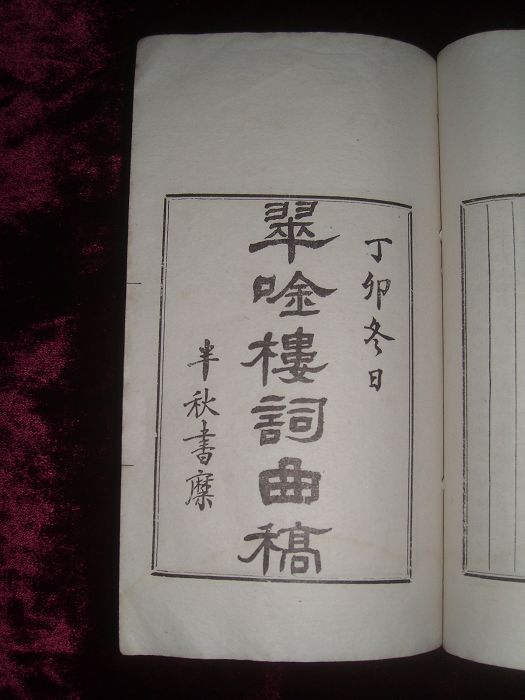 丁卯冬日
翠唫樓詞曲稿
半秋書檠